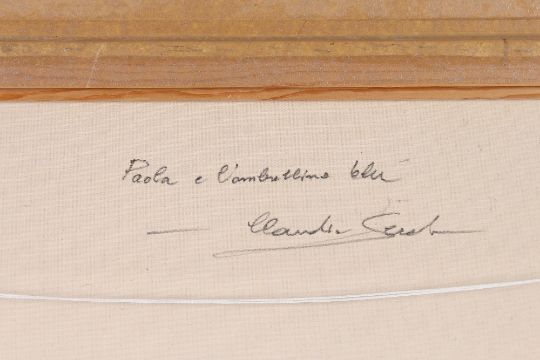 Paola e l'ombrellino blù
Claudio